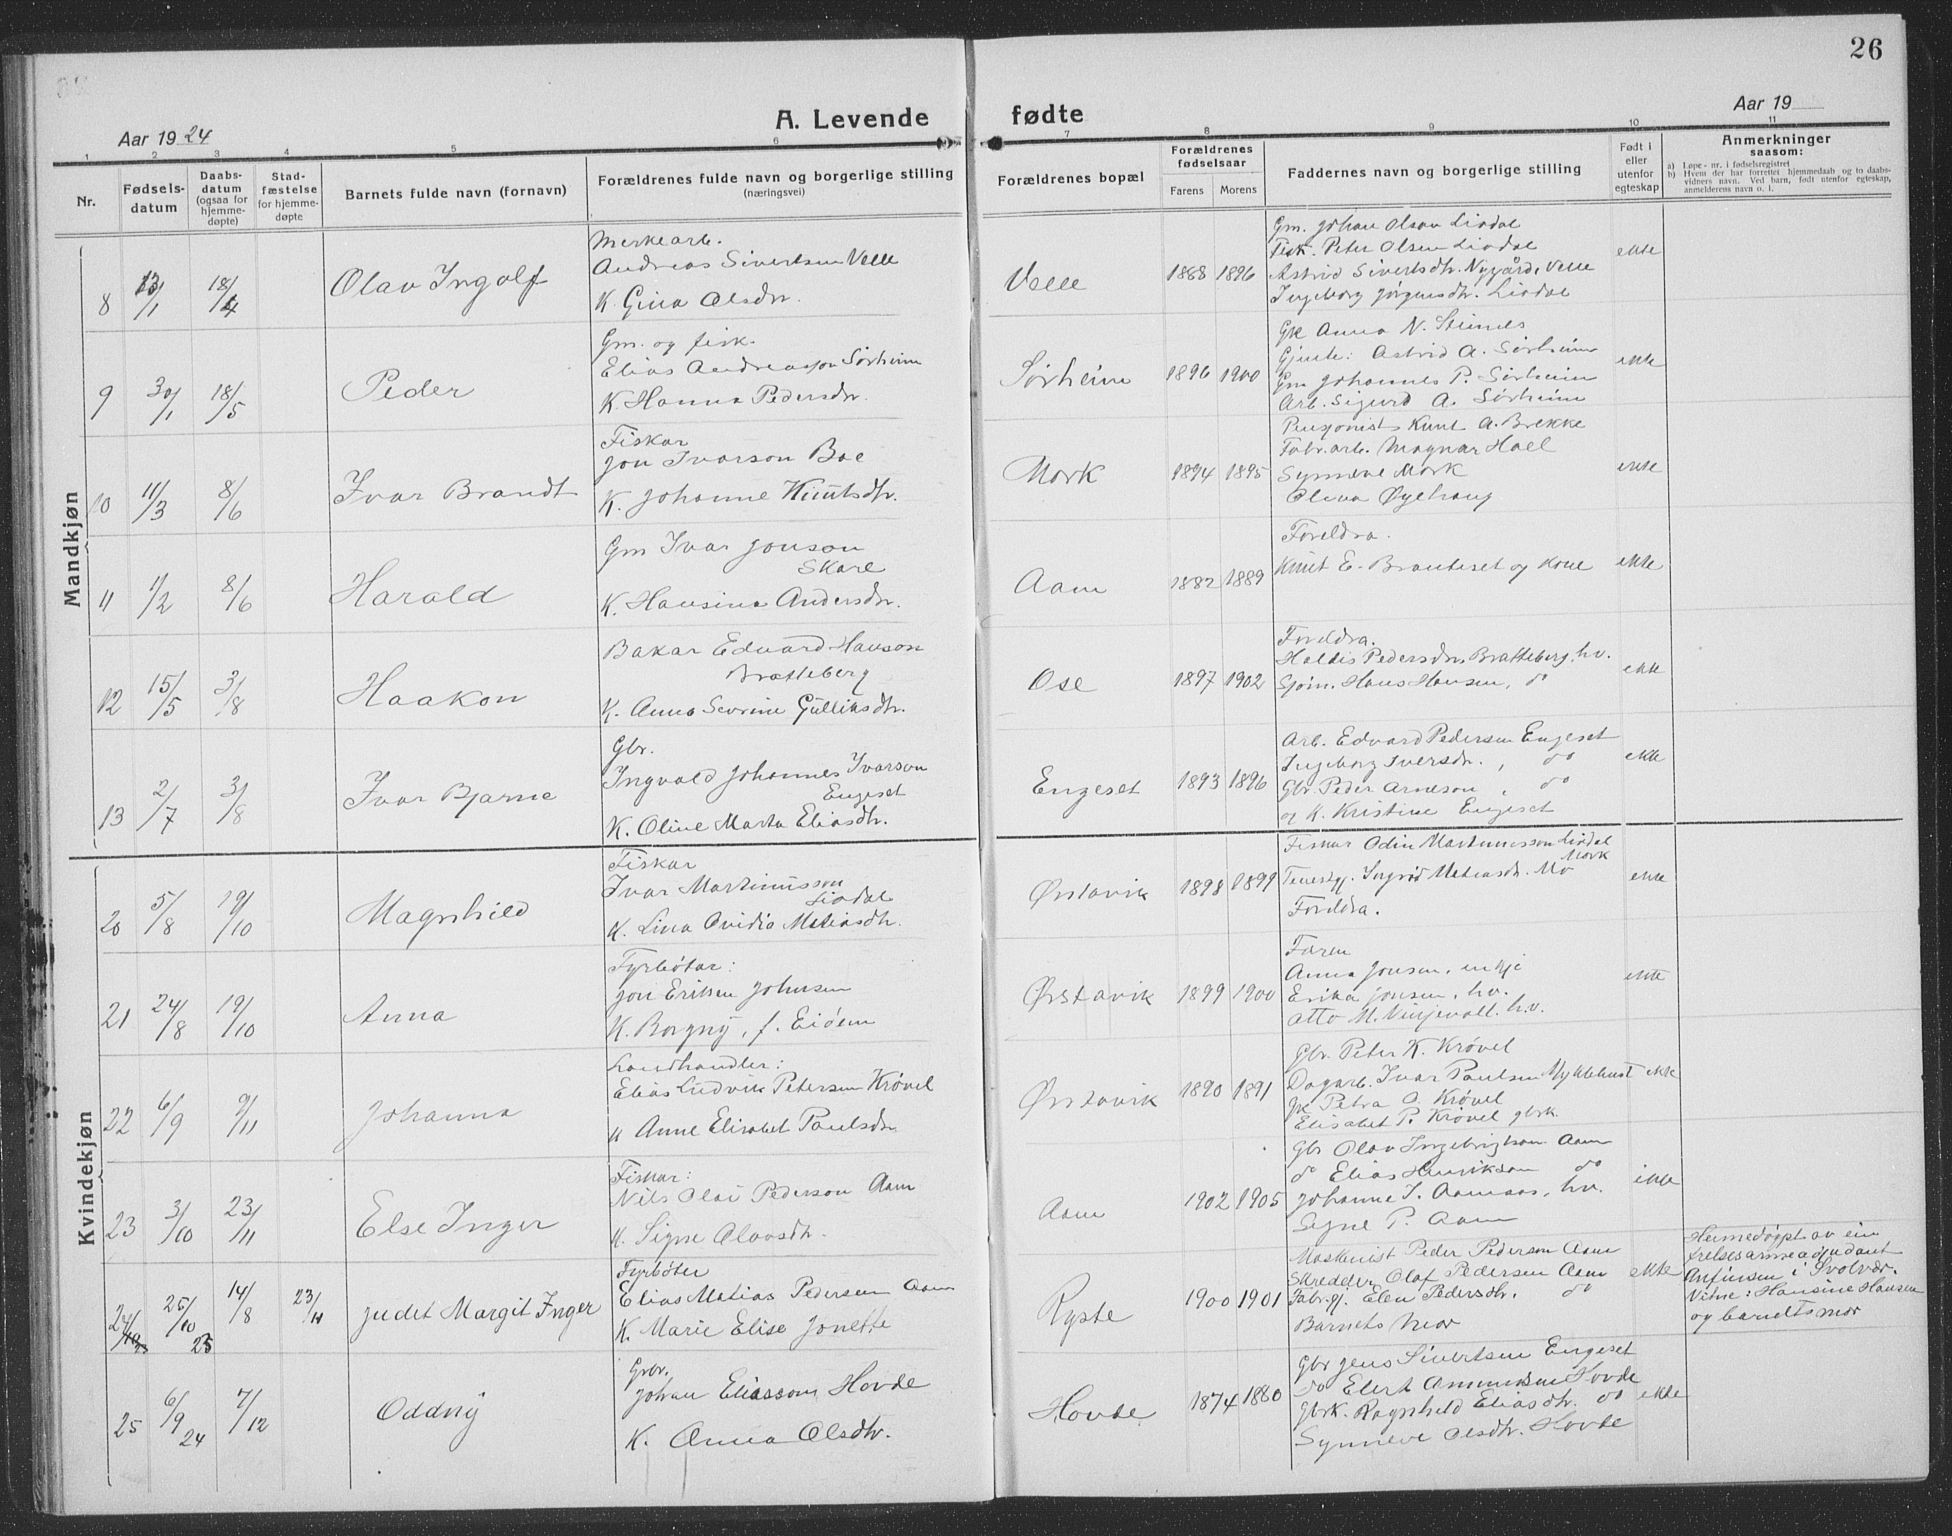 26
A. Levende fødte
Aar 1924
Aar 19
1 2 3 4 5 6 7 8 9 10 11
Nr.
Fødsels-
datum
Daabs-
datum
(ogsaa for
hjemme-
døpte)
Stad-
fæstelse
for hjemme-
døpte
Barnets fulde navn (fornavn)
Forældrenes fulde navn og borgerlige stilling
(næringsvei)
Forældrenes bopæl
Forældrenes
fødselsaar
Farens Morens
Faddernes navn og borgerlige stilling
Født i
eller
utenfor
egteskap
Anmerkninger
saasom:
a) Løpe-nr. i fødselsregistret
b) Hvem der har forrettet hjemmedaab og to daabs-
vidners navn. Ved barn, født utenfor egteskap,
anmelderens navn o. l.
Mandkjøn
8 13/1 18/4 Olav Ingolf
Merkearb.
Andreas Sivertsen Velle
K. Gina Olsdtr.
Velle 1888 1896
Gm. Johan Olson Liadal
Fisk. Peter Olsen Liadal
Astrid Sivertsdtr. Nygård, Velle
Ingeborg Jørgensdtr. Liadal
ekte
9 30/1 18/5 Peder
Gm. og fisk.
Elias Andreasson Sørheim
K. Hanna Pedersdtr.
Sørheim 1896 1900
Gk Anna N. Steinnes
Gjente: Astrid A. Sørheim
Gm Johannes P. Sørheim
Arb. Sigurd A. Sørheim
ekte
10 11/3 8/6 Ivar Brandt
Fiskar
Jon Ivarson Boe
K. Johanne Knutsdtr.
Mork 1894 1895
Pensjonist Knut A. Brekke
Fabr.arb. Magnar Hoel
Synneve Mork
Olina Øyehaug
ekte
11 1/2 8/6 Harald
Gm Ivar Jonson
Skare
K. Hansina Andersdtr.
Aam 1882 1889
Foreldra.
Knut E. Brauteset og kone
ekte
12 15/5 3/8 Haakon
Bakar Edvard Hanson
Bratteberg
K. Anna Sevrine Gulliksdtr.
Ose 1897 1902
Foreldra.
Haldis Pedersdtr. Bratteberg, hv.
Sjøm. Hans Hansen, do
ekte
13 2/7 3/8 Ivar Bjarne
Gbr.
Ingvald Johannes Ivarson
Engeset
K. Oline Marta Eliasdtr.
Engeset 1893 1896
Arb. Edvard Pedersen Engeset
Ingeborg Iversdtr., do
Gbr. Peder Arneson, do
og K. Kristine Engeset
ekte
Kvindekjøn
20 5/8 19/10 Magnhild
Fiskar
Ivar Martinusson
Liadal
K. Lina Ovidia Matiasdtr.
Ørstavik 1898 1899
Fiskar Odin Martinusson Liadal
Mork
Tenestgj. Ingrid Matiasdtr. Mo
Foreldra.
ekte
21 24/8 19/10 Anna
Fyrbøtar:
Jon Eriksen Johnsen
K. Borgny, f. Eidem
Ørstavik 1899 1900
Faren
Anna Jonsen, enkje
Erika Jonsen, hv.
Otto M. Vinjevoll. h.v.
ekte
22 6/9 9/11 Johanna
Landhandler:
Elias Ludvik Petersen Krøvel
K Anne Elisabet Paulsdtr
Ørstavik 1890 1891
Gbr. Peter K. Krøvel
Dagarb. Ivar Paulsen Myklebust
Gk Petra O. Krøvel
Elisabet P. Krøvel gbrk.
ekte
23 3/10 23/11 Else Inger
Fiskar:
Nils Olai Pederson Aam
K. Signe Olavsdtr.
Aam 1902 1905
Gbr Olav Ingebrigtson Aam
do Elias Henrikson do
Johanne I. Aamaas, hv.
Signe P. Aam
ikke
24 25/10 23 14/8 23/11 Judet Margit Inger
Fyrbøter
Elias Matias Pedersen Aam
K. Marie Elise Jonette
Ryste 1900 1901
Maskinist Peder Pederson Aam
Skredder Olaf Pedersen Aam
Fabr.gj. Elen Pedersdtr. do
Barnets mor
ekte
Heimedøypt av ein
frelsesarmeadjudant
Anfinsen i Svolvær.
Vitne: Hansine Hansen
og barnets mor
25 6/9 24 7/12 Oddny
Grbr.
Johan Eliasson Hovde
K. Anna Olsdtr.
Hovde 1874 1880
Gbr Jens Sivertsen Engeset
do Elert Ammundsen Hovde
Gbrk. Ragnhild Eliasdtr. do
Synneve Olsdtr. Hovde
ekte